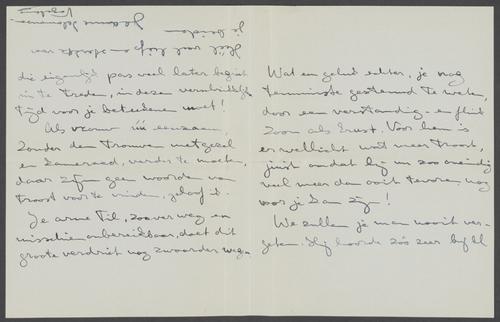 die eigenlijk pas veel later begint
in te treden, in dezen verschrikkelijke
tijd voor je beteekenen moet!
Als vrouw nú eenzaam,
zonder den trouwen metgezel
en kameraad, verder te moeten,
daar zijn geen woorden van
troost voor te vinden, geloof ik.
Je arme Til, zoo ver weg en
misschien onbereikbaar, doet dit
groote verdriet nog zwaarder weg-
Wat een geluk echter, je nog
tenminste gesteund te weten,
door een verstandig en flink
zoon als Ernst. Voor hem is
er wellicht wat meer troost,
juist omdat hij nu zoo oneindig
veel meer dan ooit tevoren nog
voor je kan zijn!
We zullen je man nooit ver-
geten. Hij hoorde zóó zeer bij
Heel veel liefs en sterkte van
je beiden